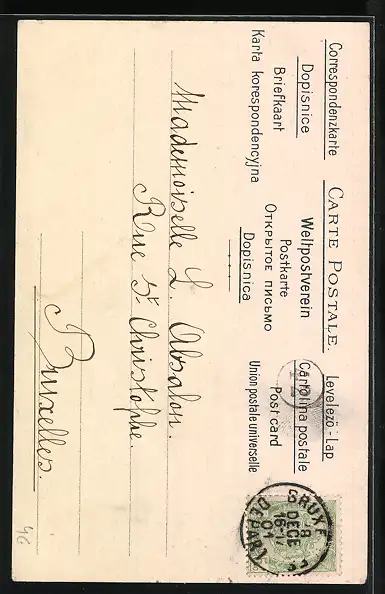 CARTE POSTALE.
Correspondenzkarte
Weltpostverein
Levelező-Lap
Dopisnice
Postkarte
Cartolina postale
Briefkaart
Открытое письмо
Post card
Karta korespondencyjna
Dopisnica
Union postale universelle
BRUXE
8
DECE
16
01
DEPART
Mademoiselle L. Absalon.
Rue St Christophe.
Bruxelles.
46